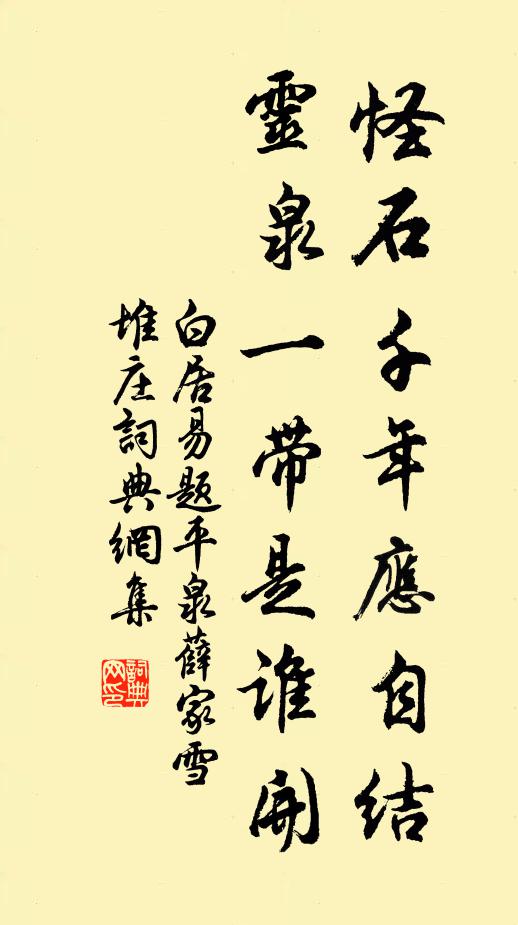 怪石千年應自结
靈泉一带是誰開
白居易題平泉薛家雪
堆庄詞典網集
詞典网印